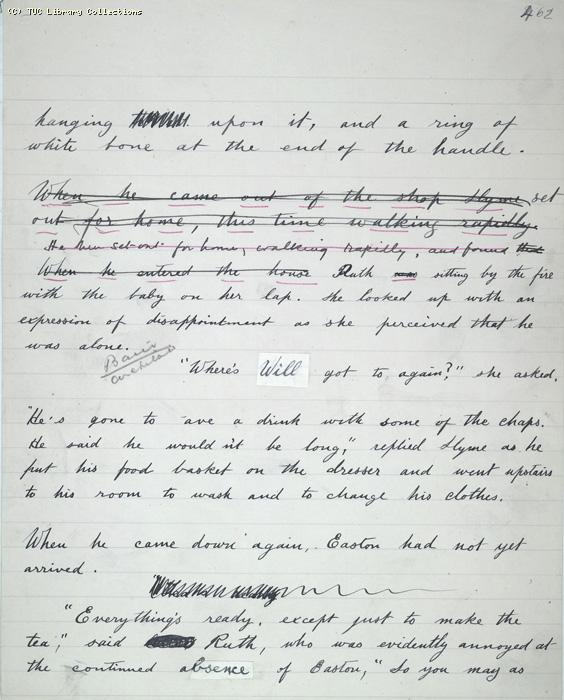 (C) TUC Library Collections
462
hanging upon it, and a ring of
white bone at the end of the handle.
When he came out of the shop Slyme set
out for home, this time walking rapidly.
He then set out for home, walking rapidly, and found that
When he entered the house Ruth was sitting by the fire
with the baby on her lap. She looked up with an
expression of disappointment as she perceived that he
was alone.
"Where's Will got to again?" she asked.
"He's gone to 'ave a drink with some of the chaps.
He said he wouldn't be long," replied Slyme as he
put his food basket on the dresser and went upstairs
to his room to wash and to change his clothes.
When he came down again, Easton had not yet
arrived.
"Everything's ready, except just to make the
tea," said Ruth, who was evidently annoyed at
the continued absence of Easton, "so you may as